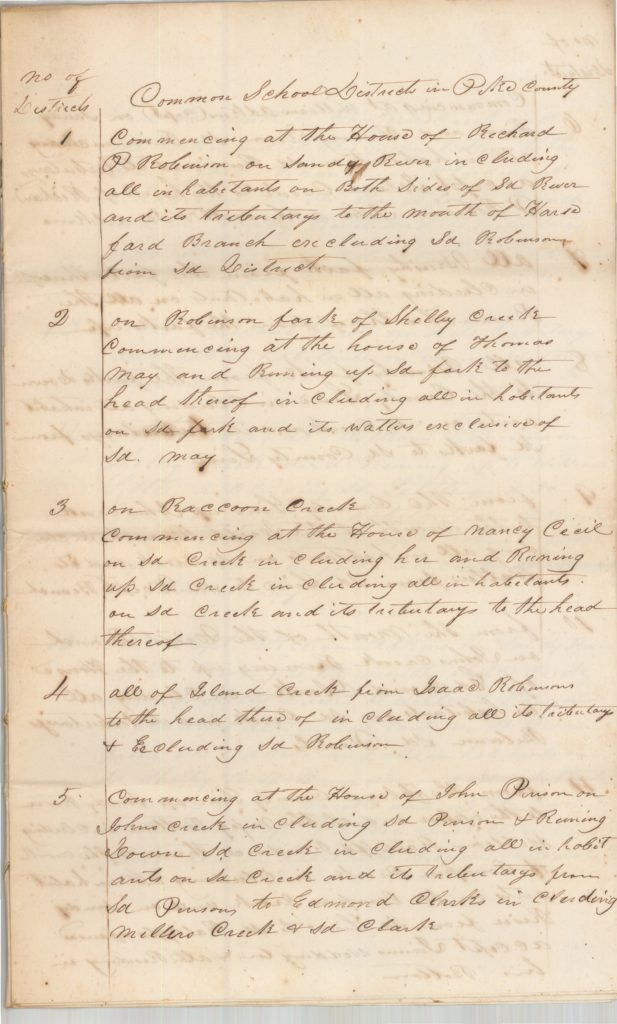 no of
Districts
Common School Districts in Pike County
1 Commencing at the House of Richard
P Robinson on Sandy River in cluding
all in habitants on Both Sides of Sd River
and its tributarys to the mouth of Harse
fard Branch excluding Sd Robinson
from Sd District
2 on Robinson fark of Shelby Creek
Commencing at the house of Thomas
May and Runing up Sd fork to the
head thereof in cluding all in habitants
on Sd fork and its watters exclusive of
Sd. May
3 on Raccoon Creek
Commencing at the House of Nancy Cecil
on Sd Creek in cluding her and Runing
up Sd Creek in cluding all in habetants.
on Sd Creek and its tributarys to the head
thereof
4 all of Island Creek from Isaac Robinsons
to the head there of in cluding all its tributarys
& Excluding Sd Robinson
5 Commencing at the House of John Pinson on
Johns Creek in cluding Sd Pinson & Runing
Down Sd Creek in cluding all in habit
ants on Sd Creek and its tributarys from
Sd Pinsons to Edmond Clarks in cluding
Millers Creek & Sd Clark